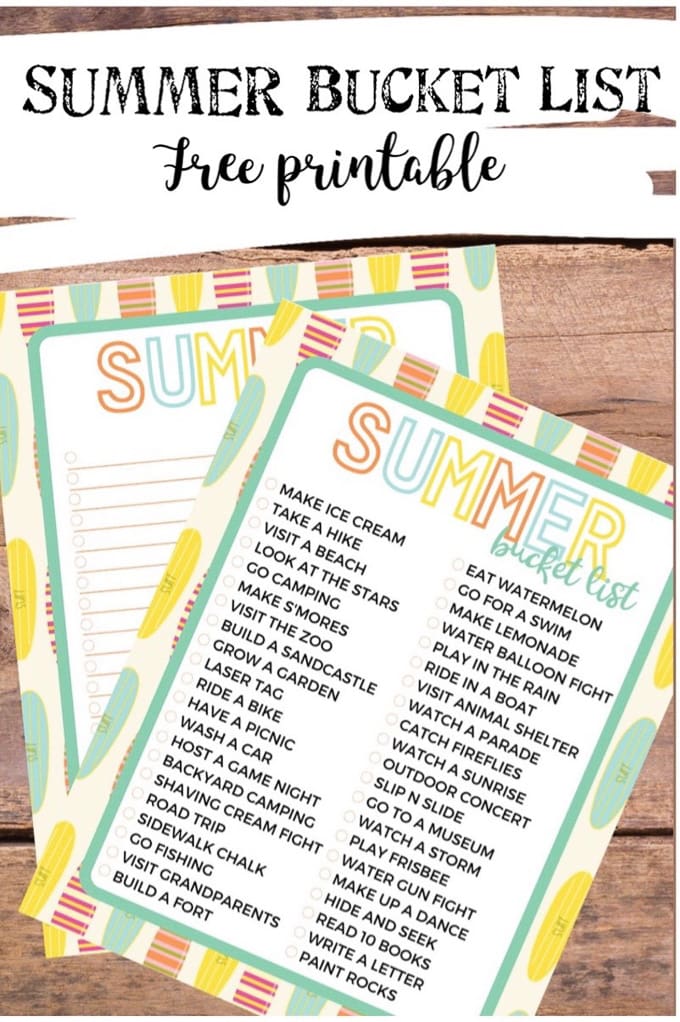 SUMMER BUCKET LIST
Free printable
SUM
SUMMER
bucket list
MAKE ICE CREAM
TAKE A HIKE
VISIT A BEACH
LOOK AT THE STARS
GO CAMPING
MAKE S'MORES
VISIT THE ZOO
BUILD A SANDCASTLE
GROW A GARDEN
LASER TAG
RIDE A BIKE
HAVE A PICNIC
WASH A CAR
HOST A GAME NIGHT
BACKYARD CAMPING
SHAVING CREAM FIGHT
ROAD TRIP
SIDEWALK CHALK
GO FISHING
VISIT GRANDPARENTS
BUILD A FORT
EAT WATERMELON
GO FOR A SWIM
MAKE LEMONADE
WATER BALLOON FIGHT
PLAY IN THE RAIN
RIDE IN A BOAT
VISIT ANIMAL SHELTER
WATCH A PARADE
CATCH FIREFLIES
WATCH A SUNRISE
OUTDOOR CONCERT
SLIP N SLIDE
GO TO A MUSEUM
WATCH A STORM
PLAY FRISBEE
WATER GUN FIGHT
MAKE UP A DANCE
HIDE AND SEEK
READ 10 BOOKS
WRITE A LETTER
PAINT ROCKS